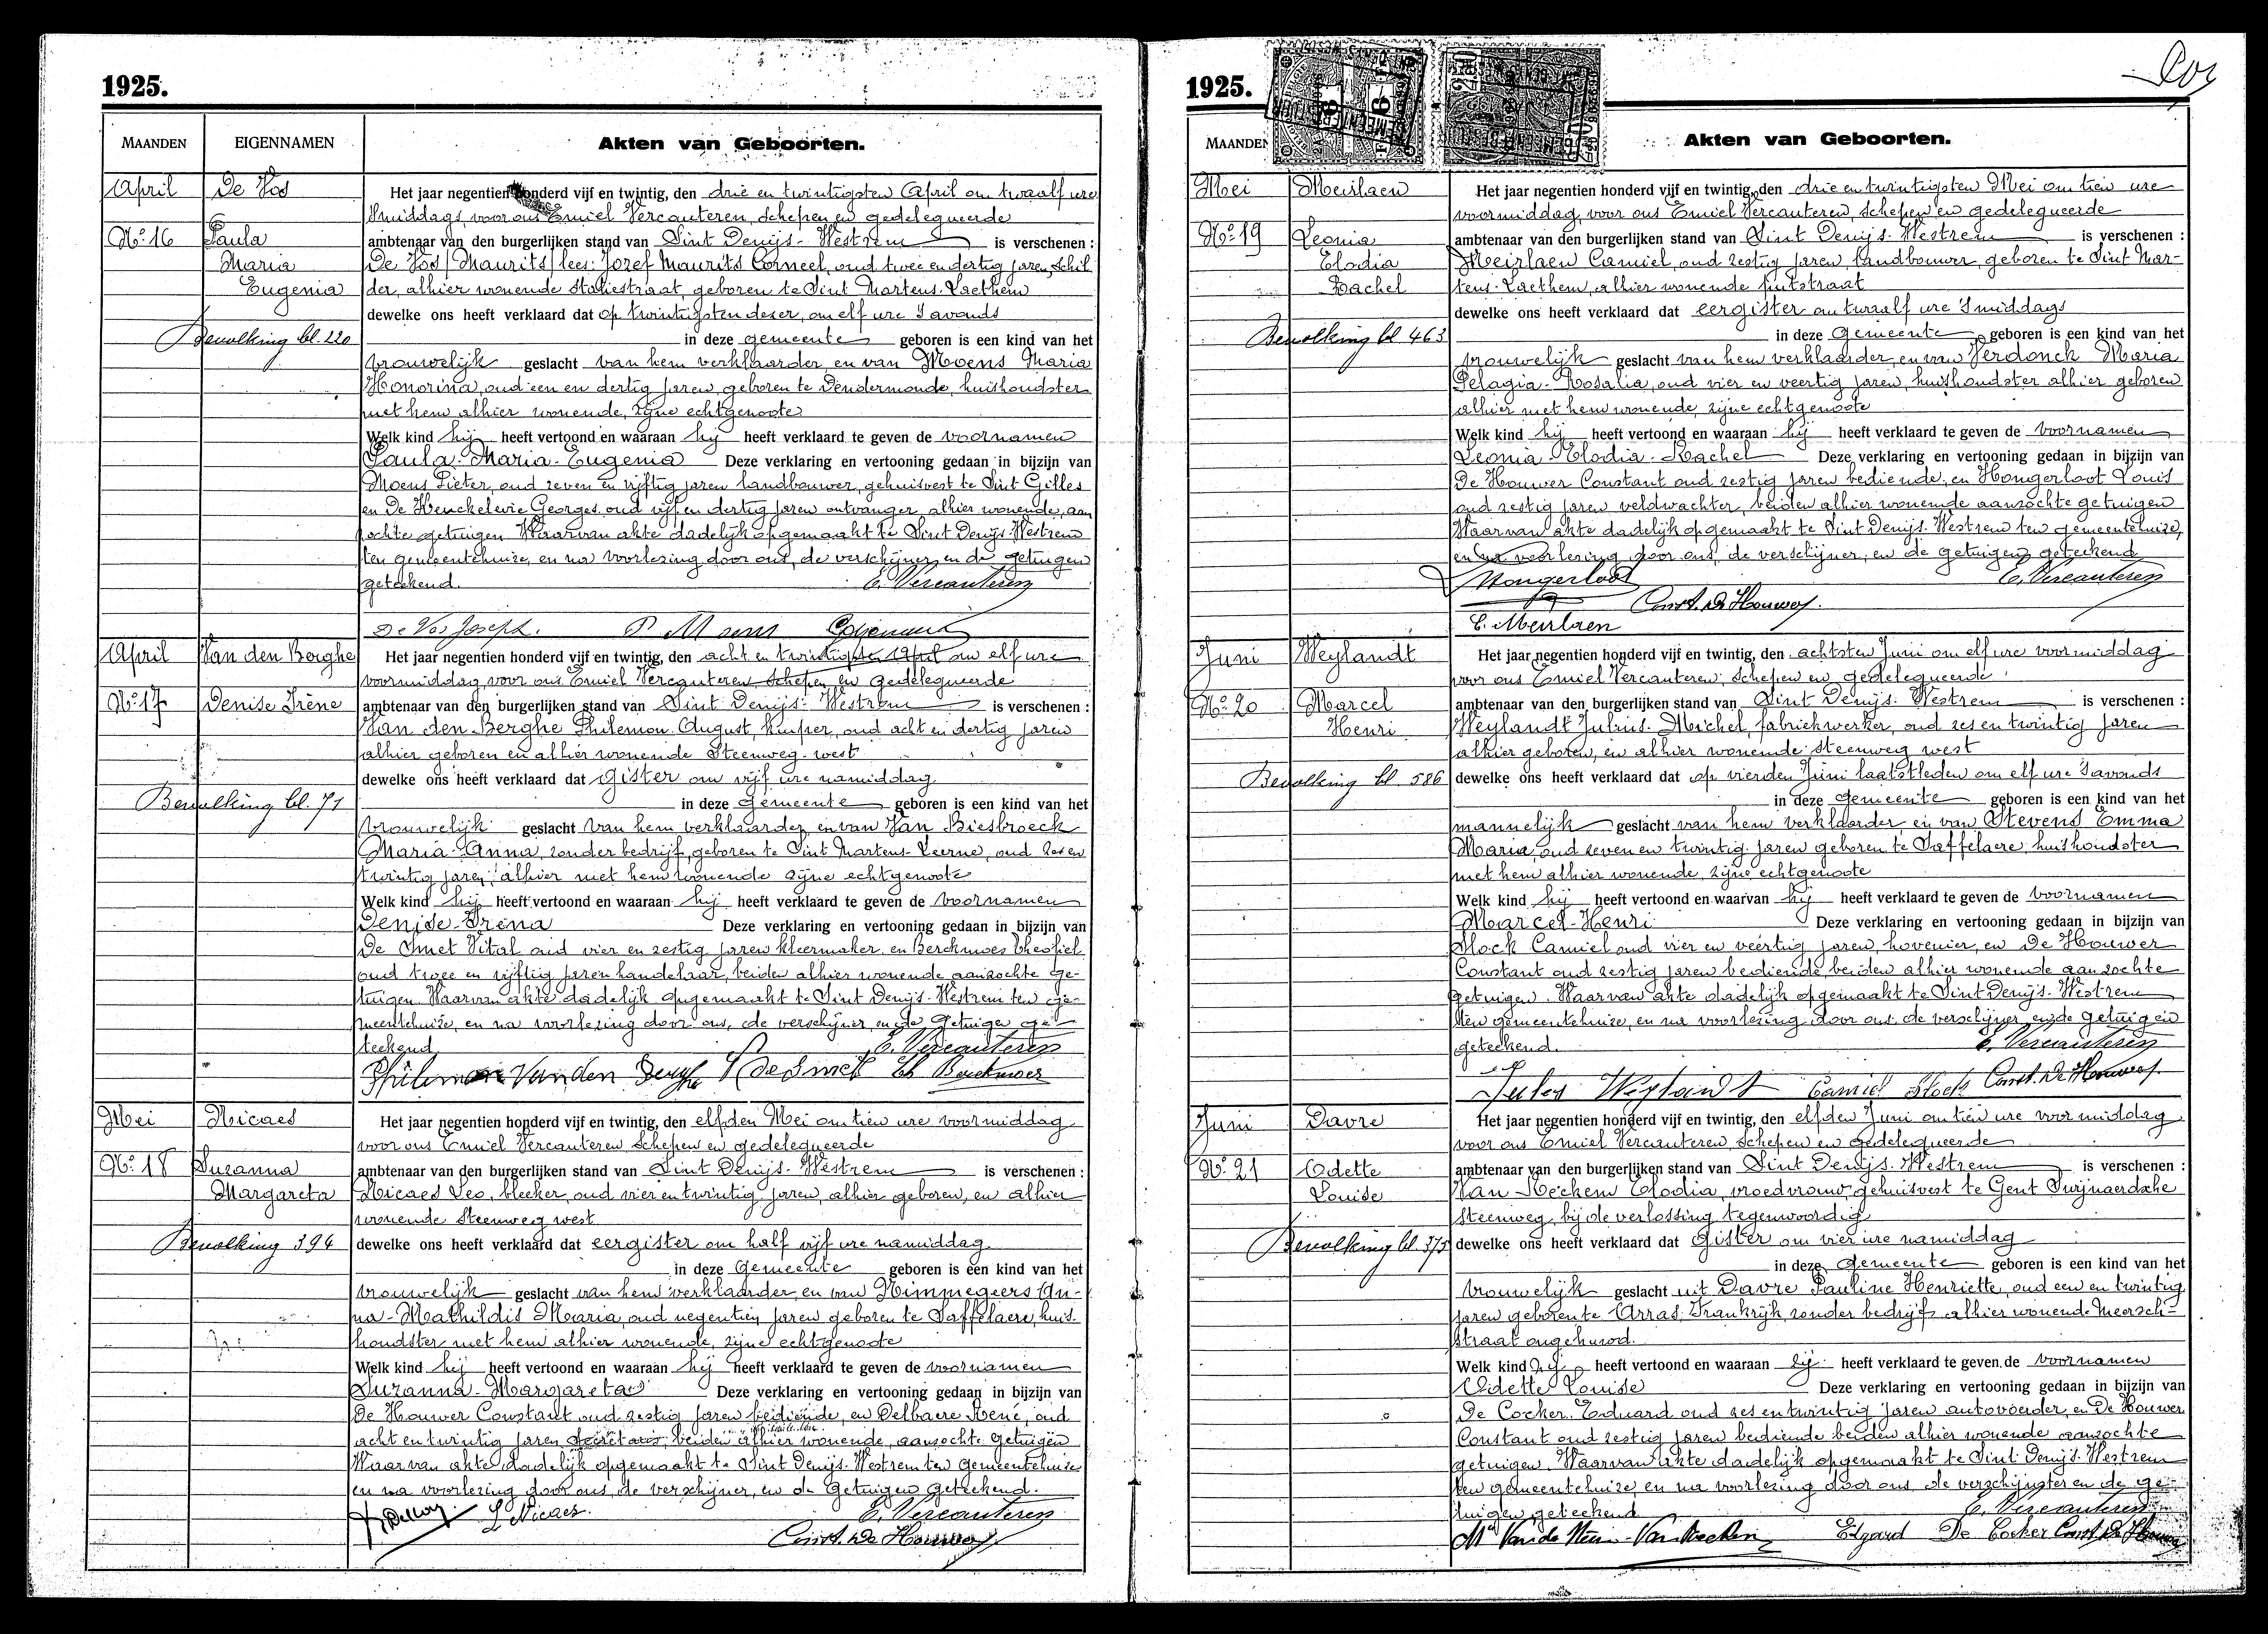 1925.
MAANDEN EIGENNAMEN Akten van Geboorten.
April De Vos
Nº 16 Paula
Maria
Eugenia
Bevolking bl. 220
Het jaar negentien honderd vijf en twintig, den drie en twintigsten April om twaalf ure
'smiddags, voor ons Emiel Vercauteren, schepen en gedelegueerde
ambtenaar van den burgerlijken stand van Sint Denijs-Westrem is verschenen :
De Vos (Maurits) lees: Jozef Maurits Corneel, oud twee en dertig jaren, schil
der, alhier wonende Statiestraat, geboren te Sint Martens-Laethem
dewelke ons heeft verklaard dat op twintigsten deser, om elf ure 's avonds
in deze gemeente geboren is een kind van het
vrouwelijk geslacht van hem verklaarder, en van Moens Maria
Honorina, oud een en dertig jaren, geboren te Dendermonde, huishoudster
met hem alhier wonende, zijne echtgenoote
Welk kind hij heeft vertoond en waaraan hij heeft verklaard te geven de voornamen
Paula-Maria-Eugenia Deze verklaring en vertooning gedaan in bijzijn van
Moens Pieter, oud zeven en vijftig jaren landbouwer, gehuisvest te Sint Gilles
en De Georges, oud vijf en dertig jaren ontvanger, alhier wonende, aan
zochte getuigen Waarvan akte dadelijk opgemaakt te Sint Denijs-Westrem
ten gemeentehuize, en na voorlezing door ons, de verschijner en de getuigen
geteekend. E. Vercauteren
De Vos Joseph. P Moens
April Van den Berghe
Nº 17 Denise Irène
Bevolking bl. 71
Het jaar negentien honderd vijf en twintig, den acht en twintigsten April om elf ure
voormiddag, voor ons Emiel Vercauteren schepen en gedelegueerde
ambtenaar van den burgerlijken stand van Sint Denijs-Westrem is verschenen :
Van den Berghe Philemon August, kuiper, oud acht en dertig jaren
alhier geboren en alhier wonende Steenweg-west
dewelke ons heeft verklaard dat gister om vijf ure namiddag
in deze gemeente geboren is een kind van het
vrouwelijk geslacht van hem verklaarder en van Van Biesbroeck
Maria-Anna, zonder bedrijf, geboren te Sint Martens-Leerne, oud zes en
twintig jaren, alhier met hem wonende zijne echtgenoote
Welk kind hij heeft vertoond en waaraan hij heeft verklaard te geven de voornamen
Denise-Irèna Deze verklaring en vertooning gedaan in bijzijn van
De Smet Vital oud vier en zestig jaren kleermaker en Berckmoes Theofiel
oud twee en vijftig jaren handelaar, beiden alhier wonende aanzochte ge-
tuigen. Waarvan akte dadelijk opgemaakt te Sint Denijs-Westrem ten ge-
meentehuize, en na voorlezing door ons, de verschijner, en de getuigen ge-
teekend E. Vercauteren
Philemon Van den Berghe V De Smet Th Berckmoes
Mei Nicaes
Nº 18 Suzanna
Margareta
Bevolking 394
Het jaar negentien honderd vijf en twintig, den elfden Mei om tien ure voormiddag
voor ons Emiel Vercauteren schepen en gedelegueerde
ambtenaar van den burgerlijken stand van Sint Denijs-Westrem is verschenen :
Nicaes Leo, bleeker, oud vier en twintig jaren, alhier geboren, en alhier
wonende Steenweg west
dewelke ons heeft verklaard dat eergister om half vijf ure namiddag
in deze gemeente geboren is een kind van het
vrouwelijk geslacht van hem verklaarder en van Nimmegeers An-
na-Mathildis Maria, oud negentien jaren geboren te Saffelaere, huis-
houdster met hem alhier wonende, zijne echtgenoote
Welk kind hij heeft vertoond en waaraan hij heeft verklaard te geven de voornamen
Suzanna-Margareta Deze verklaring en vertooning gedaan in bijzijn van
De Houwer Constant oud zestig jaren bediende, en Delbaere René, oud
acht en twintig jaren secretaris beiden alhier wonende, aanzochte getuigen
Waarvan akte dadelijk opgemaakt te Sint Denijs-Westrem ten gemeentehuize
en na voorlezing door ons, de verschijner, en de getuigen geteekend.
L Nicaes. E. Vercauteren
Const. De Houwer
1925.
MAANDEN Akten van Geboorten.
Mei Meirlaen
Nº 19 Leonia
Elodia
Rachel
Bevolking bl 463
Het jaar negentien honderd vijf en twintig, den drie en twintigsten Mei om tien ure
voormiddag, voor ons Emiel Vercauteren, schepen en gedelegueerde
ambtenaar van den burgerlijken stand van Sint Denijs-Westrem is verschenen :
Meirlaen Camiel, oud zestig jaren, landbouwer, geboren te Sint Mar-
tens-Laethem, alhier wonende putstraat
dewelke ons heeft verklaard dat eergister om twaalf ure 's middags
in deze gemeente geboren is een kind van het
vrouwelijk geslacht van hem verklaarder, en van Verdonck Maria
Pelagia-Rosalia, oud vier en veertig jaren, huishoudster alhier geboren
alhier met hem wonende, zijne echtgenoote
Welk kind hij heeft vertoond en waaraan hij heeft verklaard te geven de voornamen
Leonia-Elodia-Rachel Deze verklaring en vertooning gedaan in bijzijn van
De Houwer Constant oud zestig jaren bediende, en Hongerloot Louis
oud zestig jaren veldwachter, beiden alhier wonende aanzochte getuigen
Waarvan akte dadelijk opgemaakt te Sint Denijs-Westrem ten gemeentehuize,
en na voorlezing door ons, de verschijner, en de getuigen geteekend
Hongerloot E. Vercauteren
Const. De Houwer.
C. Meirlaen
Juni Weylandt
Nº 20 Marcel
Henri
Bevolking bl. 586
Het jaar negentien honderd vijf en twintig, den achtsten Juni om elf ure voormiddag
voor ons Emiel Vercauteren, schepen en gedelegueerde
ambtenaar van den burgerlijken stand van Sint Denijs-Westrem is verschenen :
Weylandt Julius-Michel, fabriekwerker, oud zes en twintig jaren
alhier geboren, en alhier wonende steenweg west
dewelke ons heeft verklaard dat op vierden Juni laatstleden om elf ure 's avonds
in deze gemeente geboren is een kind van het
mannelijk geslacht van hem verklaarder en van Stevens Emma
Maria, oud zeven en twintig jaren geboren te Saffelaere, huishoudster
met hem alhier wonende, zijne echtgenoote
Welk kind hij heeft vertoond en waarvan hij heeft verklaard te geven de voornamen
Marcel-Henri Deze verklaring en vertooning gedaan in bijzijn van
Block Camiel oud vier en veertig jaren, hovenier, en De Houwer
Constant oud zestig jaren bediende, beiden alhier wonende aanzochte
getuigen. Waarvan akte dadelijk opgemaakt te Sint Denijs-Westrem
ten gemeentehuize, en na voorlezing door ons, de verschijner, en de getuigen
geteekend. E. Vercauteren
Jules Weylandt Camiel Block Const. De Houwer.
Juni Davre
Nº 21 Odette
Louise
Bevolking bl. 375
Het jaar negentien honderd vijf en twintig, den elfden Juni om tien ure voormiddag
voor ons Emiel Vercauteren, schepen en gedelegueerde
ambtenaar van den burgerlijken stand van Sint Denijs-Westrem is verschenen :
Van Hecken Elodia, vroedvrouw, gehuisvest te Gent Swijnaerdsche
steenweg, bij de verlossing tegenwoordig
dewelke ons heeft verklaard dat gister om vier ure namiddag
in deze gemeente geboren is een kind van het
vrouwelijk geslacht uit Davre Pauline Henriette, oud een en twintig
jaren geboren te Arras, Frankrijk, zonder bedrijf, alhier wonende Meersch-
straat ongehuwd.
Welk kind zij heeft vertoond en waaraan zij heeft verklaard te geven de voornamen
Odette Louise Deze verklaring en vertooning gedaan in bijzijn van
De Cocker Eduard oud zes en twintig jaren autovoerder, en De Houwer
Constant oud zestig jaren bediende beiden alhier wonende aanzochte
getuigen. Waarvan akte dadelijk opgemaakt te Sint Denijs-Westrem
ten gemeentehuize, en na voorlezing door ons, de verschijnster en de ge-
tuigen geteekend E. Vercauteren
Edgard De Cocker Const. De Houwer